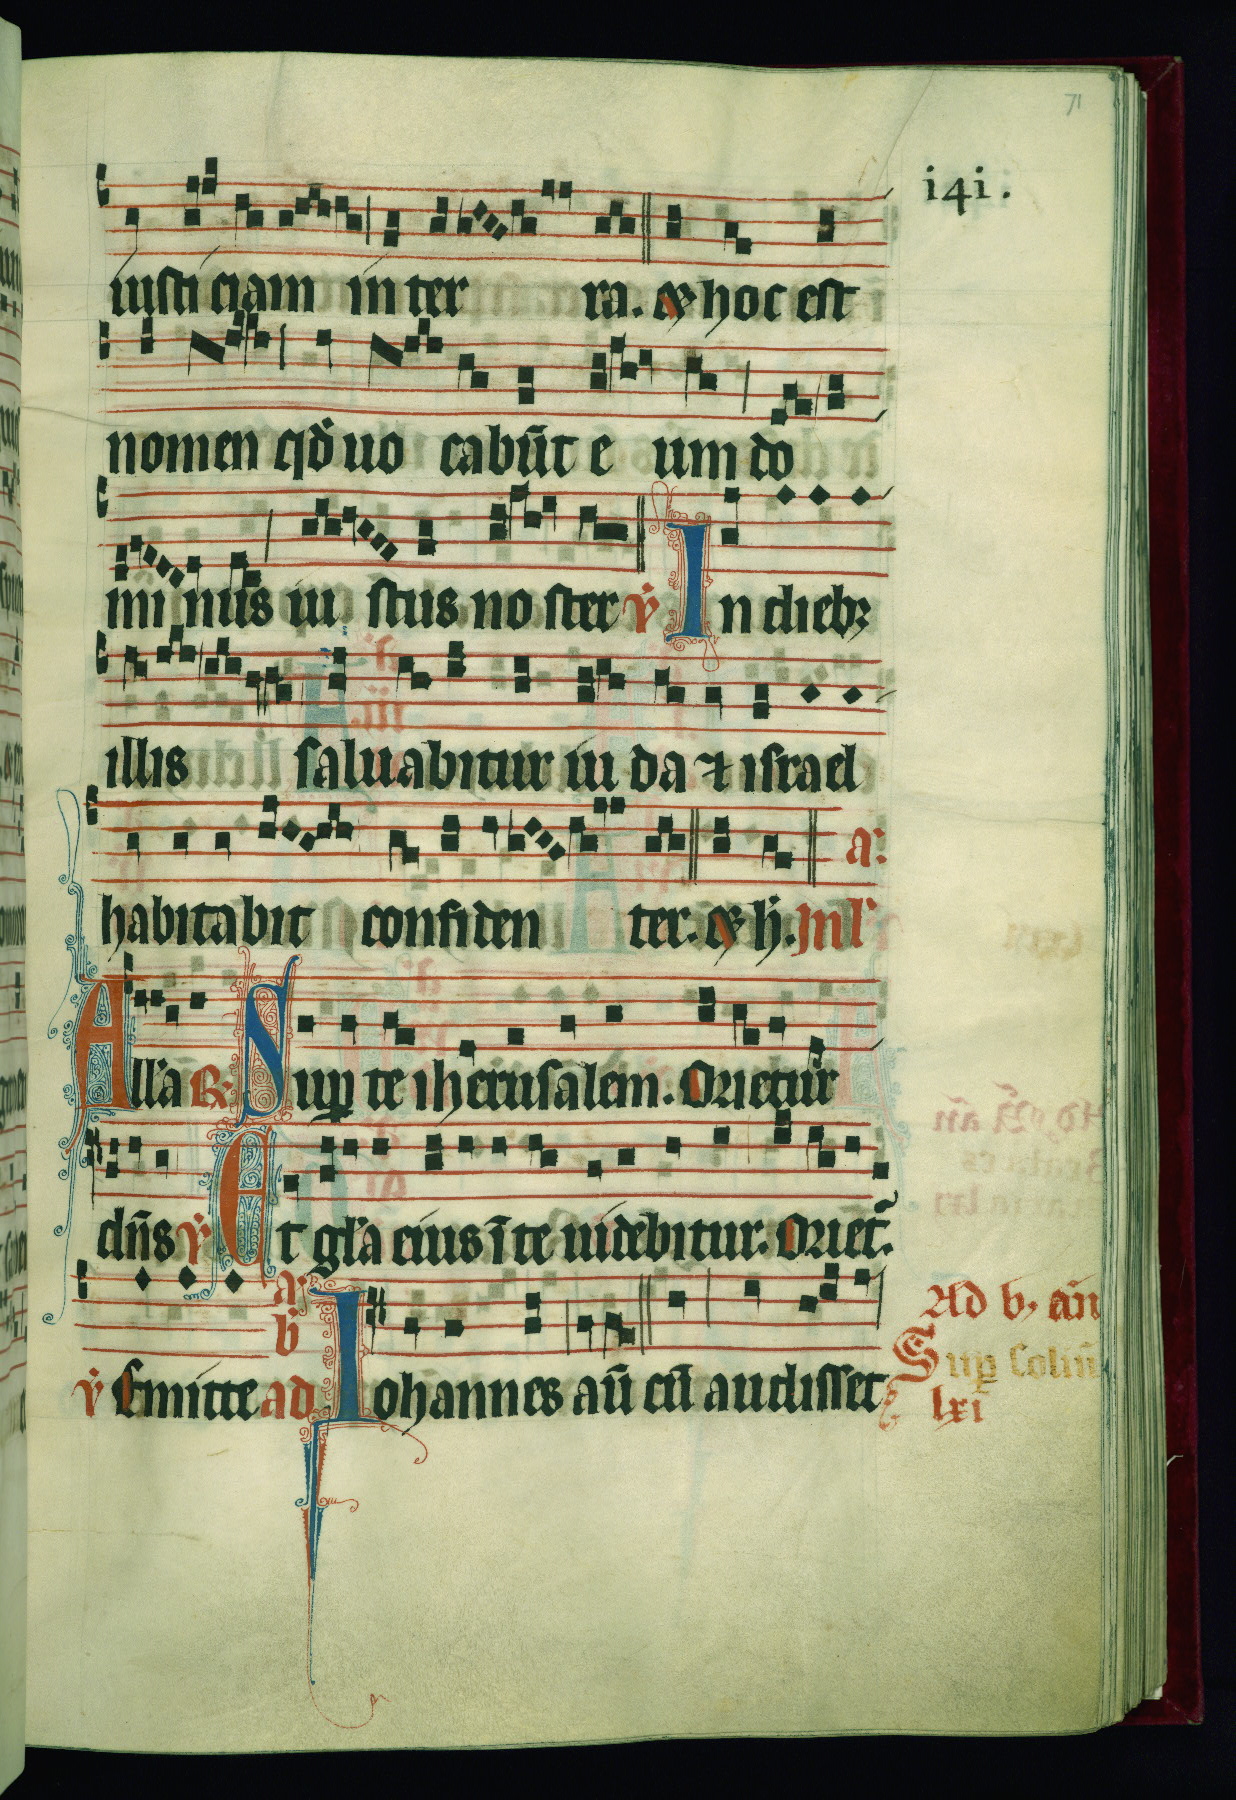 71
i4i.
iusticiam in ter ra. & hoc est
nomen qd̄ uo cabūt e um do
mi nus iu stus no ster ℣ In dieb;
illis saluabitur iu da ⁊ israel
a.
habitabit confiden ter. & h̄. In ł
All'a ℟. Sup te iherusalem. Orietur
dn̄s ℣ Et gl'a eius ī te uidebitur. Oriet̄.
a. b
℣ Emitte ad Iohannes aū cū audisset
Ad b, an̄
Sup solin̄
lxi